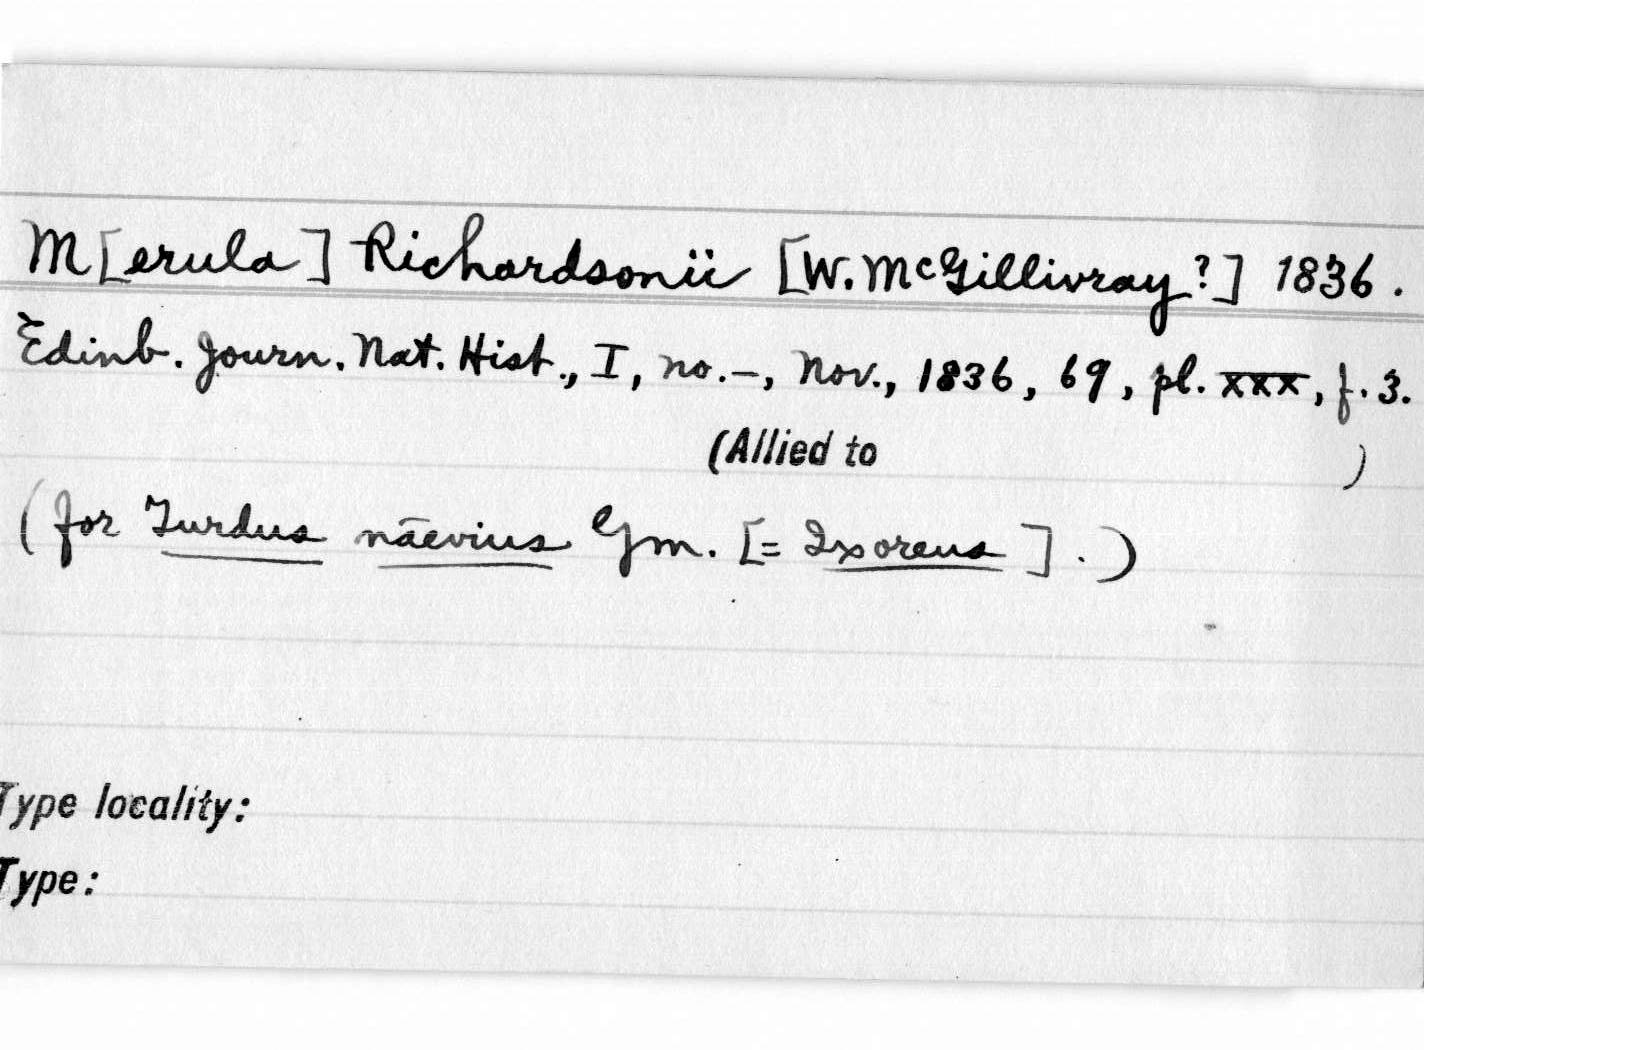 M[erula] Richardsonii [W. McGillivray?] 1836.
Edinb. Journ. Nat. Hist., I, no. –, Nov., 1836, 69, pl. xxx, f. 3.
(Allied to )
(for Turdus nāevius Gm. [= Ixoreus].)
Type locality:
Type: